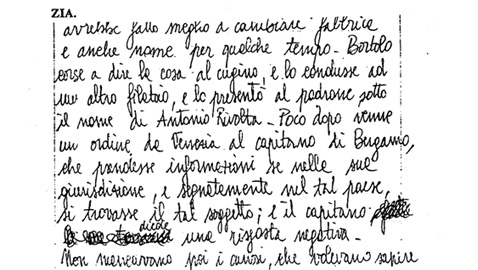 ZIA.
avrebbe fatto meglio a cambiare fabbrica
e anche nome per qualche tempo - Bortolo
corse a dire la cosa al cugino, e lo condusse ad
un altro filatoio, e lo presentò al padrone sotto
il nome di Antonio Rivolta - Poco dopo venne
un ordine da Venezia al capitano di Bergamo,
che prendesse informazioni se nelle sue
giurisdizione, e segnatamente nel tal paese,
si trovasse il tal soggetto; e il capitano
diede
una risposta negativa -
Non mancavano poi i curiosi, che volevano sapere